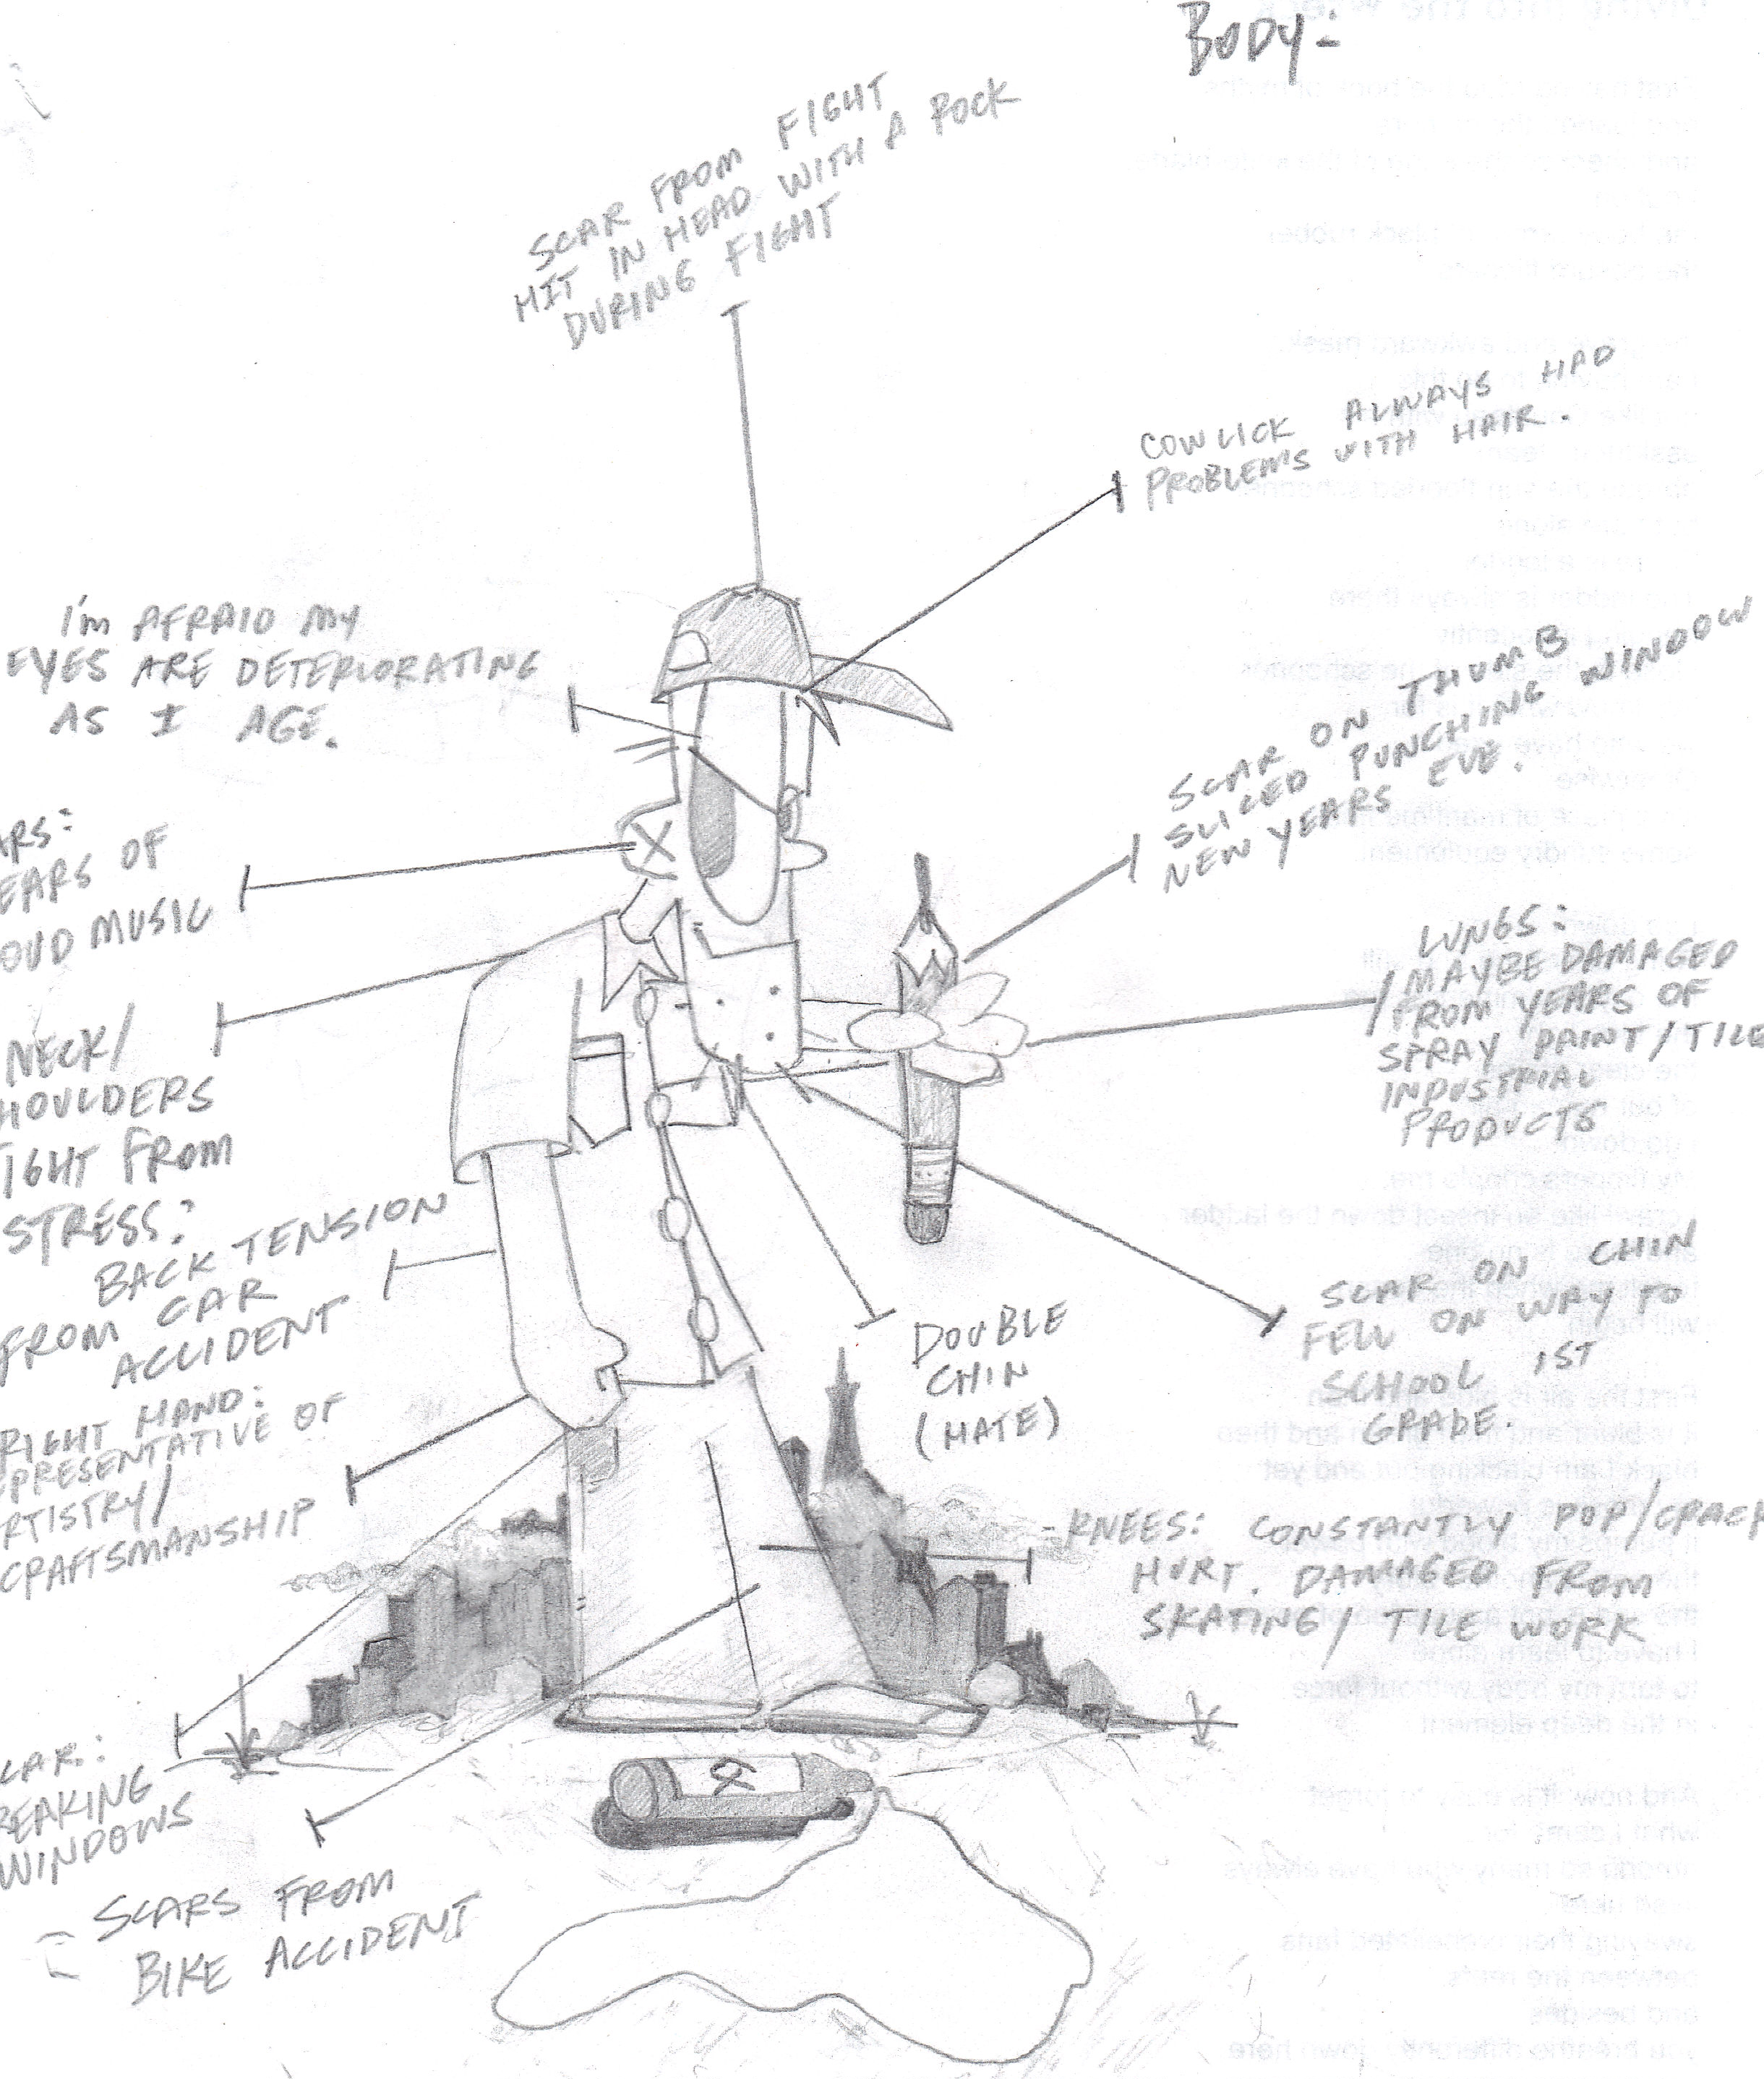 BODY:
SCAR FROM FIGHT
HIT IN HEAD WITH A ROCK
DURING FIGHT
COWLICK ALWAYS HAD
PROBLEMS WITH HAIR.
I'm AFRAID MY
EYES ARE DETERIORATING
AS I AGE.
SCAR ON THUMB
SLICED PUNCHING WINDOW
NEW YEARS EVE.
ARS:
EARS OF
OUD MUSIC
LUNGS:
MAYBE DAMAGED
FROM YEARS OF
SPRAY PAINT/TILE
INDUSTRIAL
PRODUCTS
NECK/
HOULDERS
IGHT FROM
STRESS:
BACK TENSION
FROM CAR
ACCIDENT
DOUBLE
CHIN
(HATE)
SCAR ON CHIN
FELL ON WAY TO
SCHOOL 1ST
GRADE.
RIGHT HAND:
EPRESENTATIVE OF
RTISTRY/
CRAFTSMANSHIP
-KNEES: CONSTANTLY POP/CRACK
HURT. DAMAGED FROM
SKATING/ TILE WORK
CAR:
REAKING
WINDOWS
SCARS FROM
BIKE ACCIDENT